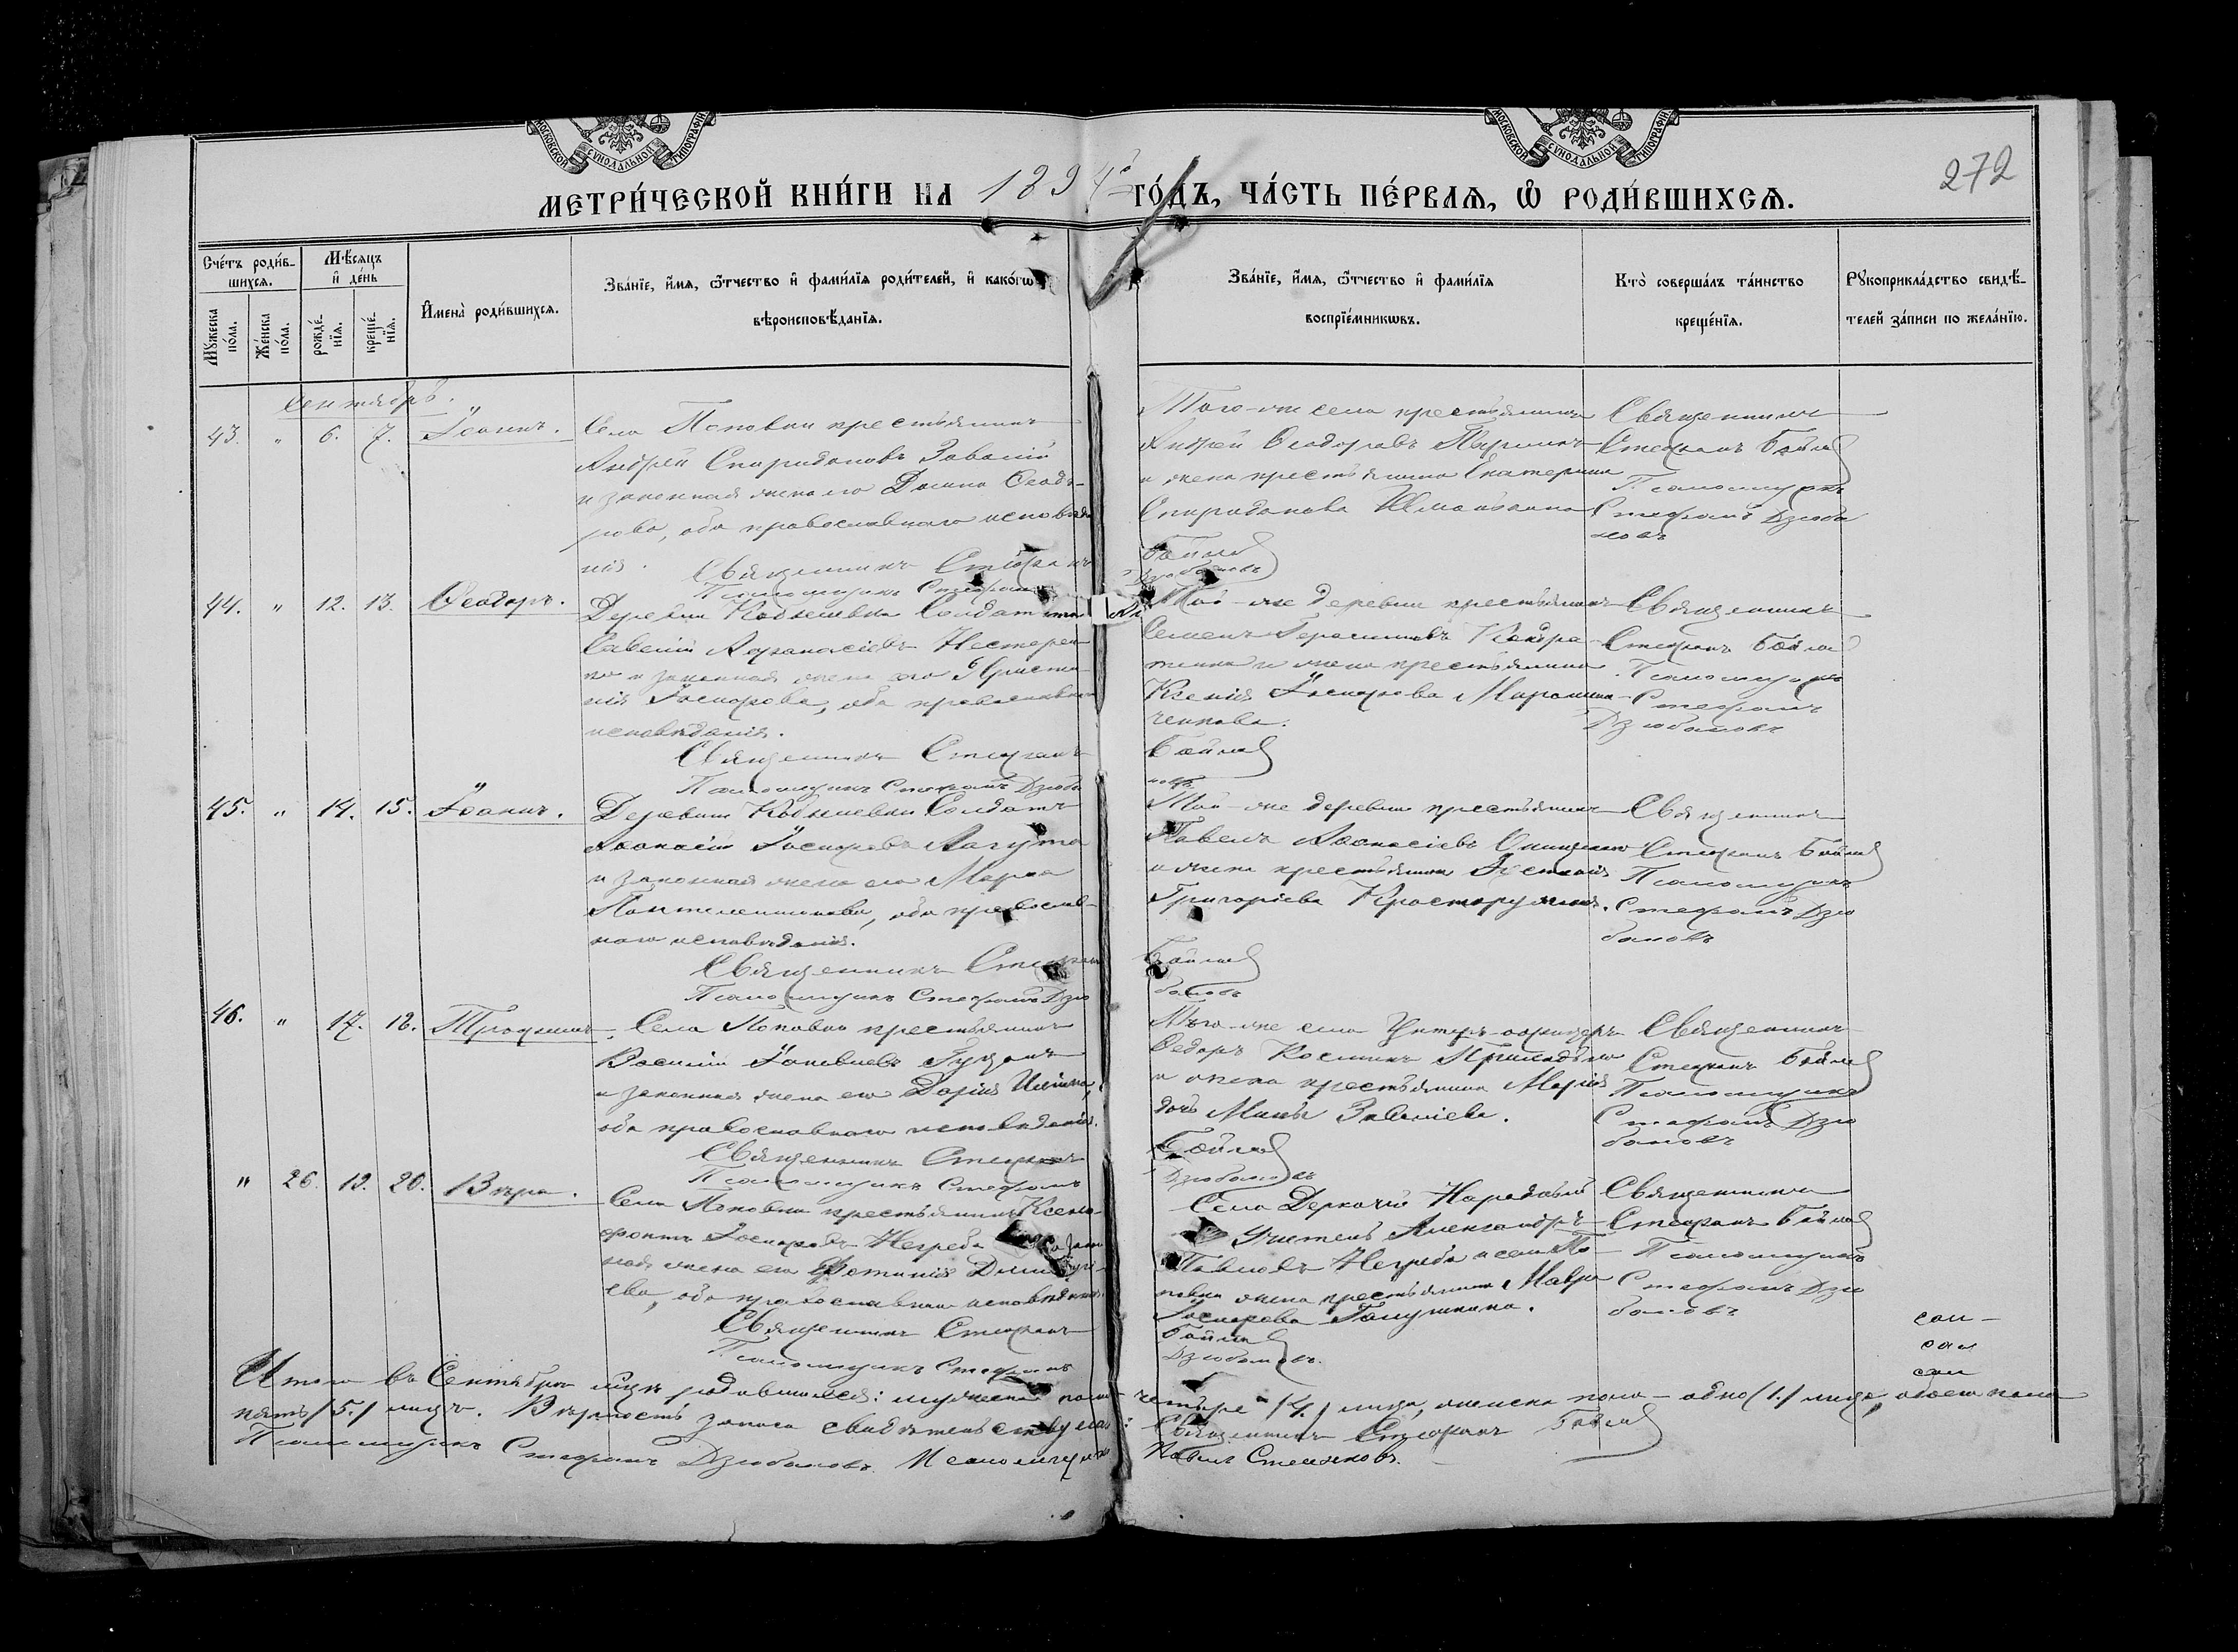 МОСКОВСКОЙ СѴНОДАЛЬНОЙ ТИПОГРАФІИ
МОСКОВСКОЙ СѴНОДАЛЬНОЙ ТИПОГРАФІИ
272
МЕТРИ́ЧЕСКОЙ КНИ́ГИ НА 1894 ГО́ДЪ, ЧА́СТЬ ПЕ́РВАЯ, Ѡ РОДИ́ВШИХСЯ.
Сче́тъ роди́в-
шихся.
Мѣ́сяцъ
и де́нь
Мꙋ́жеска по́ла.
Же́нска по́ла.
рожде́-нїя.
креще́-нїя.
Имена̀ роди́вшихся.
Зва́нїе, и́мя, ѻ҆́тчество и фами́лїя роди́телей, и како́гѡ
вѣроисповѣ́данїя.
Зва́нїе, и́мя, ѻ҆́тчество и фами́лїя
воспрїе́мникѡвъ.
Кто̀ соверша́лъ та́инство
креще́нїя.
Рꙋкоприкла́дство свидѣ́-
телей за́писи по жела́нїю.
Сентябрь.
43. " 6. 7. Іоаннъ.
Села Поповки крестьянинъ
Андрей Спиридоновъ Завалій
и законная жена его Домна Ѳеодо-
рова, оба православнаго исповѣда
нія.
Священникъ Стефанъ Бойла
Псаломщикъ Стефанъ Дзюбановъ
Того-же села крестьянинъ
Андрей Ѳеодоровъ
и жена крестьянина Екатерина
Спиридонова
Священникъ
Стефанъ Бойла
Псаломщикъ
Стефанъ Дзюба
новъ
44. " 12. 13. Ѳеодоръ.
Деревни Кобылевки Солдатъ
Савелій Аѳанасіевъ Нестерен
ко и законная жена его Христи
нія Іосифова, оба православнаго
исповѣданія.
Священникъ Стефанъ Бойла
Псаломщикъ Стефанъ Дзюба
новъ
Той-же деревни крестьянинъ
Семенъ Герасимовъ Кондра
тенко и жена крестьянина
Ксенія Іосифова
Священникъ
Стефанъ Бойла
Псаломщикъ
Стефанъ
Дзюбановъ
45. " 14. 15. Іоаннъ.
Деревни Кобылевки Солдатъ
Аѳанасій Іосифовъ Лагута
и законная жена его Марѳа
Пантелеимонова, оба православ-
наго исповѣданія.
Священникъ Стефанъ Бойла
Псаломщикъ Стефанъ Дзю
бановъ
Той-же деревни крестьянинъ
Павелъ Аѳанасіевъ Онищенко
и жена крестьянина
Григоріева
Священникъ
Стефанъ Бойла
Псаломщикъ
Стефанъ Дзю
бановъ
46. " 17. 18. Трофимъ.
Села Поповки крестьянинъ
Василій
и законная жена его Дарія
оба православнаго исповѣданія.
Священникъ Стефанъ Бойла
Псаломщикъ Стефанъ Дзюбановъ
Того-же села Унтеръ-офицеръ
Ѳедоръ Косминъ
и жена крестьянина Марія
дочь Мины Завалієва.
Священникъ
Стефанъ Бойла
Псаломщикъ
Стефанъ Дзю
бановъ
" 26. 19. 20. Вѣра.
Села Поповки крестьянинъ Ксено
фонтъ Іосифовъ Негреба
ная жена его Фотинія Димитрі-
ева, оба православнаго исповѣданія.
Священникъ Стефанъ Бойла
Псаломщикъ Стефанъ Дзюбановъ.
Села Деркачей Народный
Учитель Александръ
Павловъ Негреба и села По-
повки жена крестьянина Мавра
Іосифова
Священникъ
Стефанъ Бойла
Псаломщикъ
Стефанъ Дзю
бановъ
Итого въ Сентябрѣ родившихся: мужеска пола - четыре (4.) лица, женска пола - одно (1.) лице, обоего пола
пять (5.) лицъ. Вѣрность записи свидѣтельствуемъ: Священникъ Стефанъ Бойла
Псаломщикъ Стефанъ Дзюбановъ. Псаломщикъ Павелъ